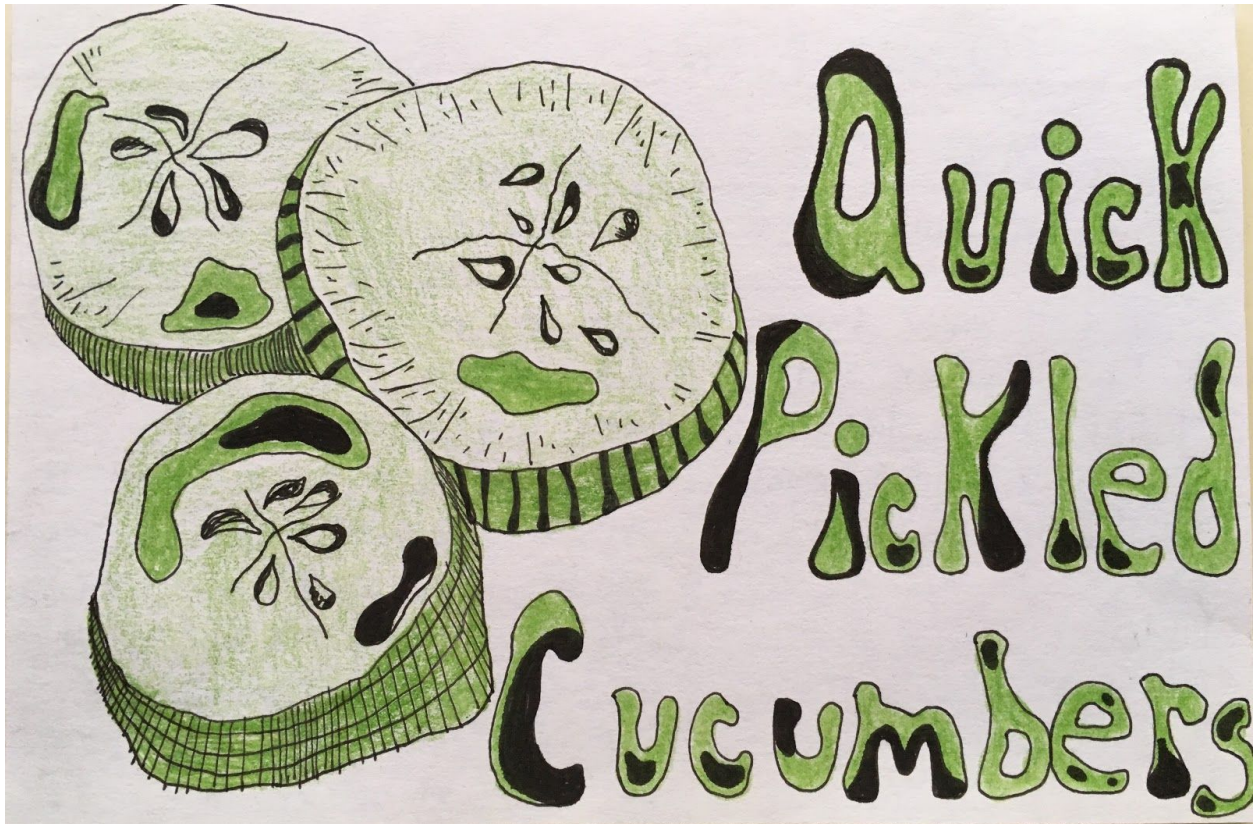 Quick
Pickled
Cucumbers